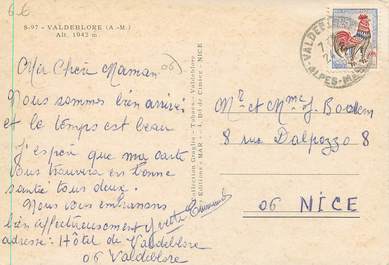 6.6
S-97 - VALDEBLORE (A.-M.)
Alt. 1042 m.
(06)
Ma Chère Maman
Nous sommes bien arrivés
et le temps est beau
J'espère que ma carte
vous trouvera en bonne
santé tous deux.
Nous vous embrassons
bien affectueusement Yvette
adresse: Hôtel de Valdeblore
06 Valdeblore
Editions MAR - Bd de Cimiez - NICE
VALDEBLORE
ALPES-MAR
Mr et Mme J. Bodem
8 rue Dalpozzo 8
06 NICE